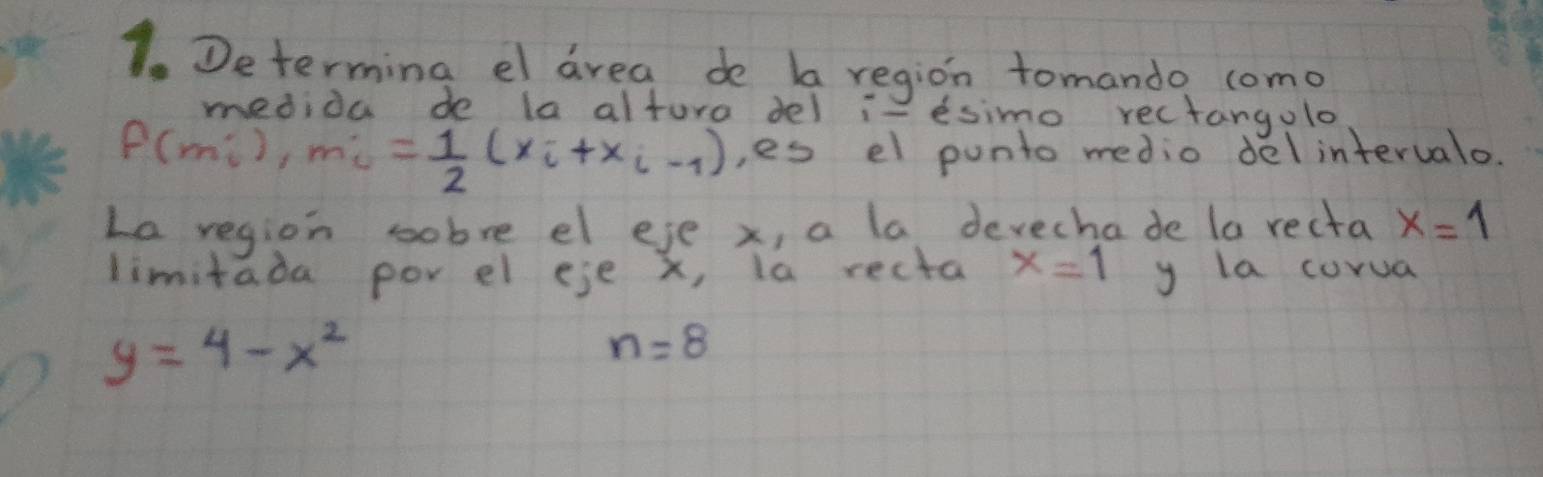 1. Determina el área de la región tomando como
medida de la altura del i-ésimo rectangulo
f(mi), mi = 1/2 (xi + xi-1), es el punto medio del intervalo.
La región sobre el eje x, a la derecha de la recta x=1
limitada por el eje x, la recta x=1 y la curva
y = 4 - x² n=8